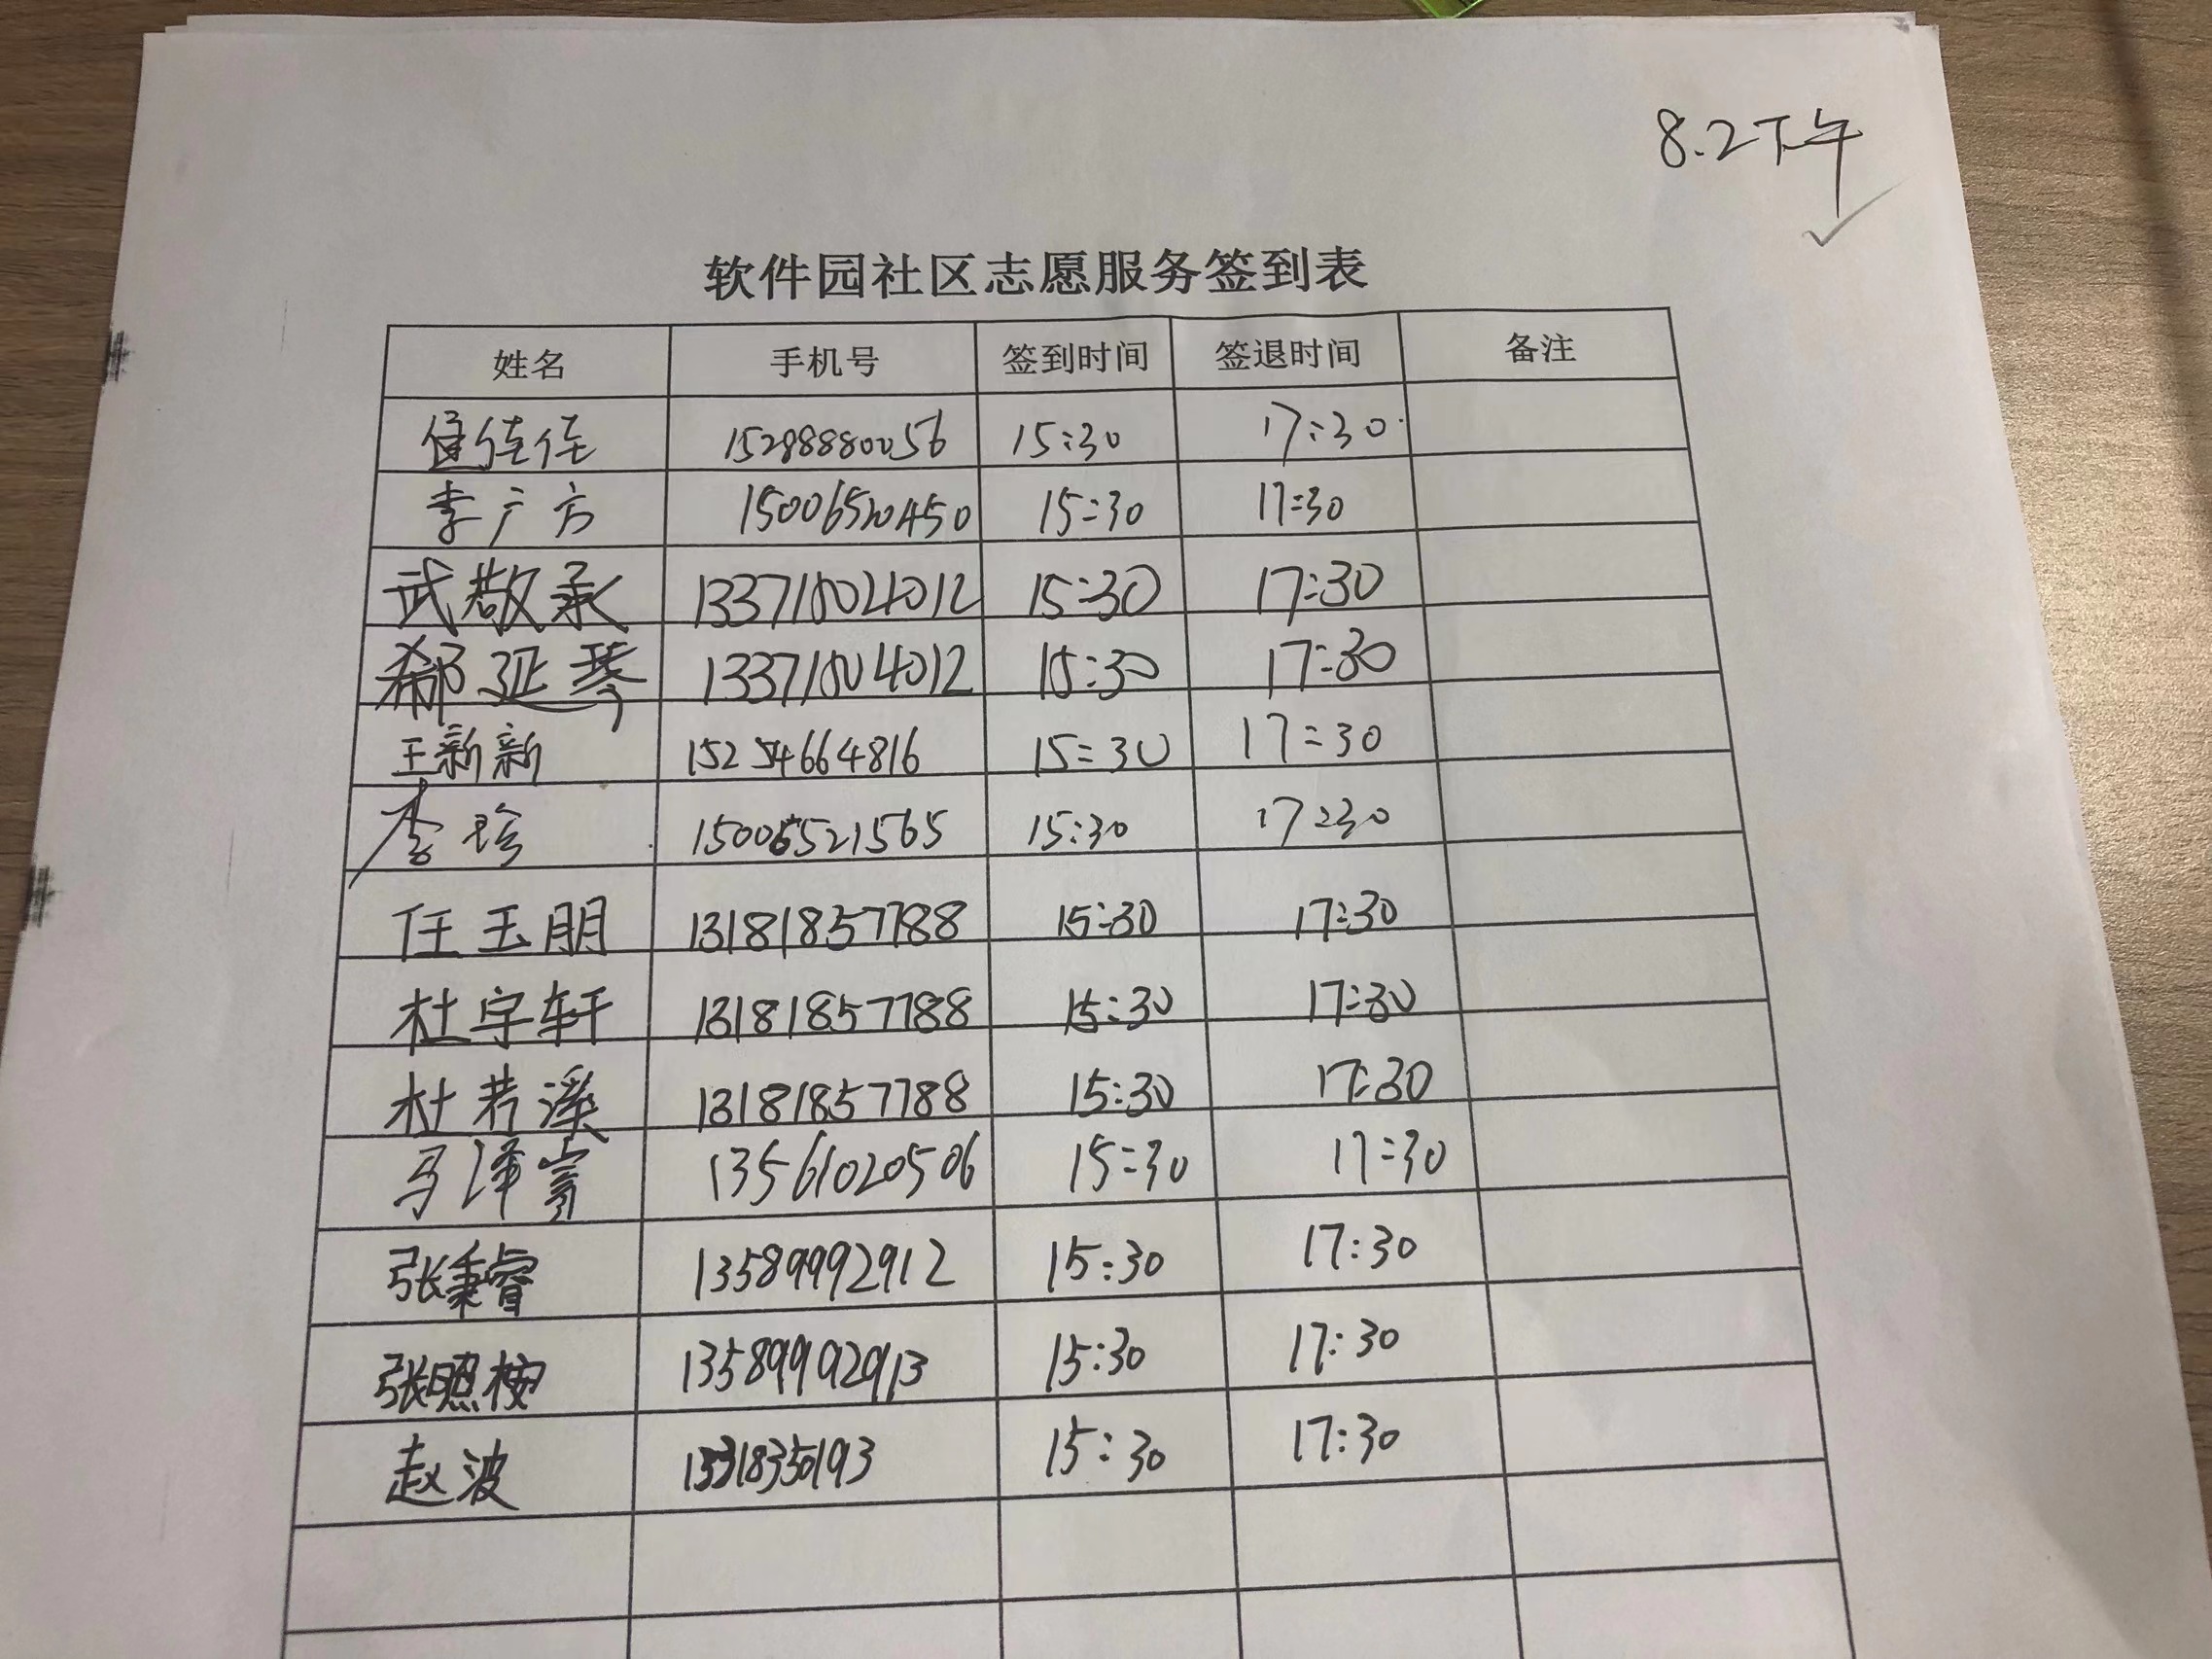 8.2下午
软件园社区志愿服务签到表
姓名 手机号 签到时间 签退时间 备注
佳佳 15298880056 15:30 17:30
李广方 15006520450 15:30 17:30
武敬承 15:30 17:30
郗延琴 13371804012 15:30 17:30
王新新 15254664816 15:30 17:30
李珍 15006521565 15:30 17:30
任玉朋 13181857788 15:30 17:30
杜宇轩 13181857788 15:30 17:30
杜若溪 13181857788 15:30 17:30
马泽 13561020506 15:30 17:30
张秉睿 13589992912 15:30 17:30
张照桉 13589992913 15:30 17:30
赵波 15:30 17:30